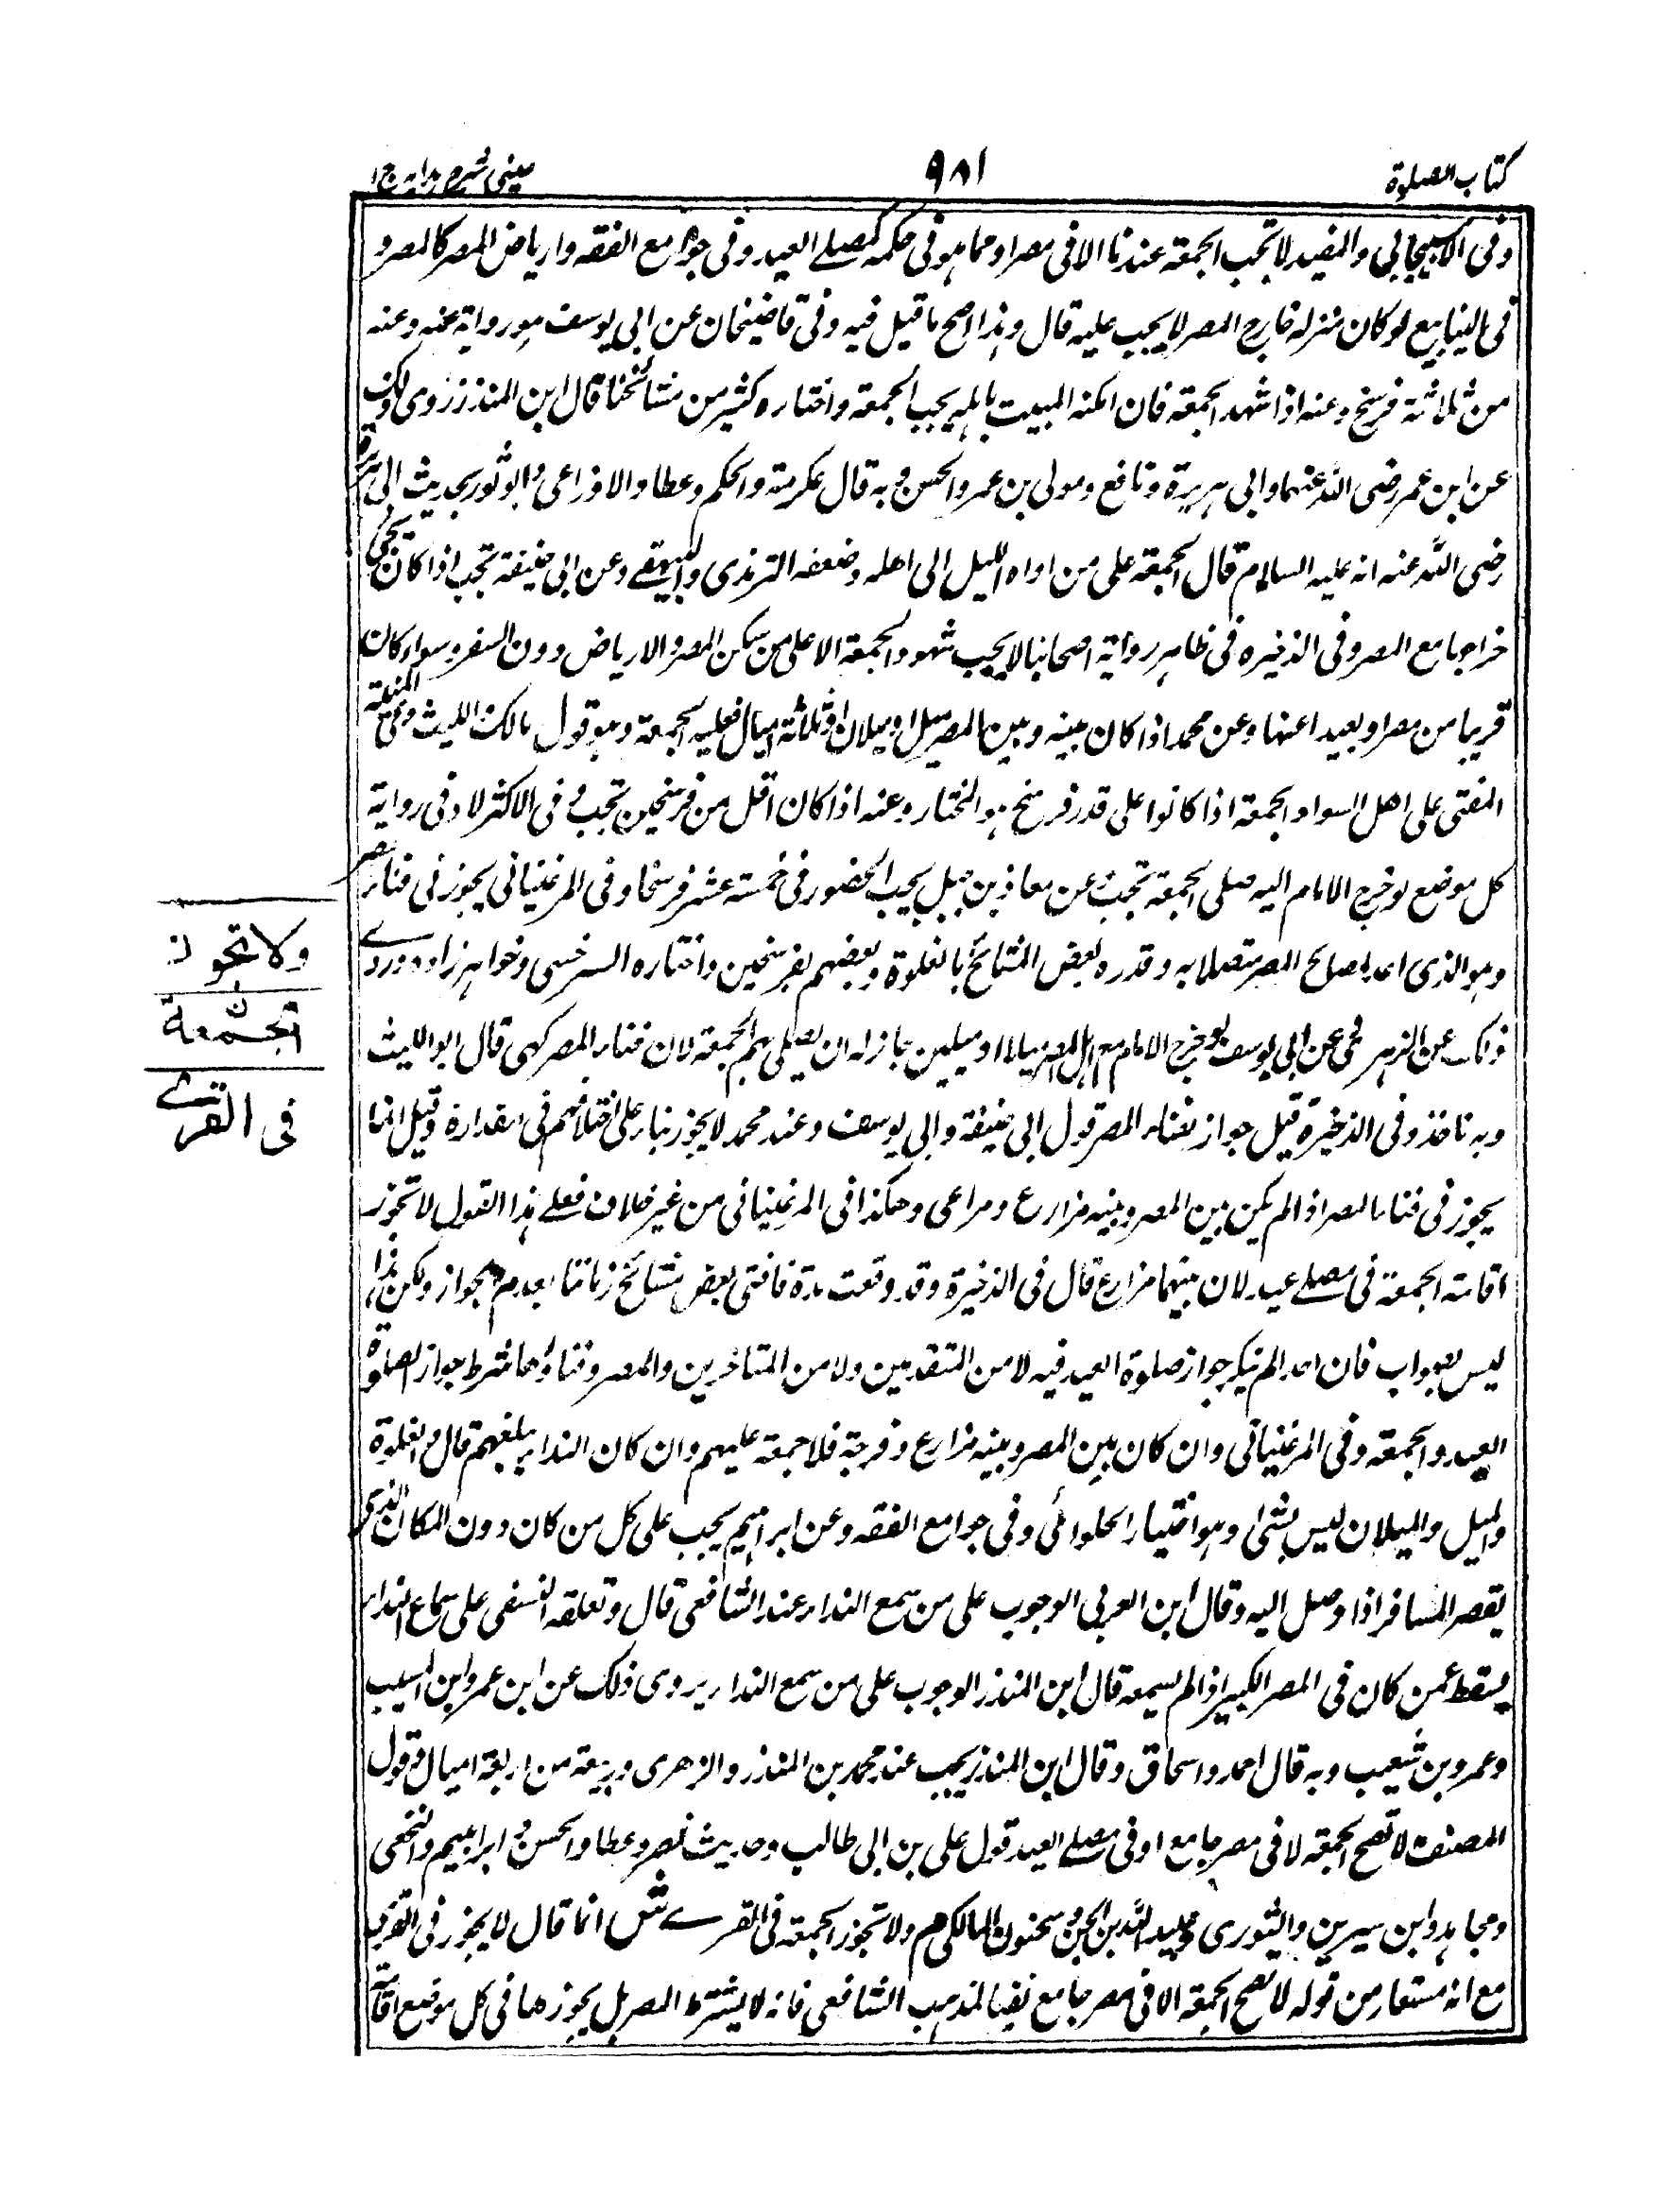 كتاب الصلوة
٩٨١
عينى شرح هدايه ج ١
وفى الاسبيجابى والمفيد لا تجب الجمعة عندنا الا فى مصر او مما هو فى حكمه كمصلے العيد وفى جوامع الفقه وارياض المصر كالمصر و
فى الينابيع لو كان منزله خارج المصر لا يجب عليه قال وهذا اصح ما قيل فيه وفى قاضيخان عن ابى يوسف هو رواية عنه وعنه
من ثلاثة فرسخ وعنه اذا شهد الجمعة فان امكنه المبيت باهله يجب الجمعة واختاره كثير من مشائخنا قال ابن المنذر روى ذلك
عن ابن عمر رضى الله عنهما وابى هريرة ونافع ومولى بن عمر والحسن وبه قال عكرمة والحكم وعطا والاوزاعى وابو ثور بحديث ابى هريرة
رضى الله عنه انه عليه السلام قال الجمعة على من اواه الليل الى اهله وضعفه الترمذى والبيهقے وعن ابى حنيفة تجب اذا كان يجئ
خراجها مع المصر وفى الذخيره فى ظاهر رواية اصحابنا لا يجب شهود الجمعة الا على من سكن المصر والارياض دون السفر وسواء كان
قريبا من مصر او بعيدا عنها وعن محمد اذا كان بينه وبين المصر ميل او ميلان او ثلاثة اميال فعليه الجمعة وهو قول مالك والليث وفى المنية
المفتى على اهل السواد الجمعة اذا كانوا على قدر فرسخ هو المختار وعنه اذا كان اقل من فرسخين تجب وفى الاكثر لا وفى رواية
كل موضع لو خرج الامام اليه صلى الجمعة تجب وعن معاذ بن جبل يجب الحضور فى خمسة عشر فرسخا وفى المرغينانى يجوز فى فناء المصر
وهو الذى اعد لصالح المصر متصلا به وقدره بعض المشائخ بالغلوة وبعضهم بفرسخين واختاره السرخسى وخواهر زاده وروے
ذلك عن الزهرى وعن ابى يوسف لو خرج الامام مع اهل المصر ميلا او ميلين جاز له ان يصلى بهم الجمعة لان فناء المصر كهى قال ابو الليث
وبه ناخذ وفى الذخيرة قيل جواز بفناء المصر قول ابى حنيفة وابى يوسف وعند محمد لا يجوز بناء على اختلافهم فى مقداره وقيل انما
يجوز فى فناء المصر اذا لم يكن بين المصر وبينه مزارع ومراعى وهكذا فى المرغينانى من غير خلاف فعلے هذا القول لا تجوز
اقامة الجمعة فى مصلے عيد لان بينهما مزارع قال فى الذخيرة وقد وقعت مدة فافتى بعض مشائخ زماننا بعدم الجواز ولكن هذا
ليس بصواب فان احدا لم ينكر جواز صلوة العيد فيه لا من المتقدمين ولا من المتاخرين والمصر وفناؤها شرط جواز الصلوة
العيد والجمعة وفى المرغينانى وان كان بين المصر وبينه مزارع وفرجة فلا جمعة عليهم وان كان النداء يبلغهم قال والغلوة
والميل والميلان ليس بشئ وهو اختيار الحلوائى وفى جوامع الفقه وعن ابراهيم يجب على كل من كان دون المكان الذى
يقصر المسافر اذا وصل اليه وقال ابن العربى الوجوب على من سمع النداء عند الشافعى قال وتعلقه النسفى على سماع النداء
يسقط عمن كان فى المصر الكبير اذا لم يسمعه قال ابن المنذر الوجوب على من سمع النداء يروى ذلك عن ابن عمر وابن المسيب
وعمرو بن شعيب وبه قال احمد واسحاق وقال ابن المنذر يجب عند محمد بن المنذر والزهرى وربيعة من اربعة اميال وقول
المصنف لا تصح الجمعة لا فى مصر جامع او فى مصلے العيد قول على بن ابى طالب وحديث نصر وعطا والحسن و ابراهيم والنخعى
ومجاهد وابن سيرين والثورى وعبيد الله بن الحسن وسحنون المالكى م ولا تجوز الجمعة فى القرے ش انما قال لا يجوز فى القرے
مع انه مستعار من قوله لا تصح الجمعة الا فى مصر جامع نفيا لمذهب الشافعى فانه لا يشترط المصر بل يجوزها فى كل موضع اقامة
ولا تجوز
الجمعة
فى القرے